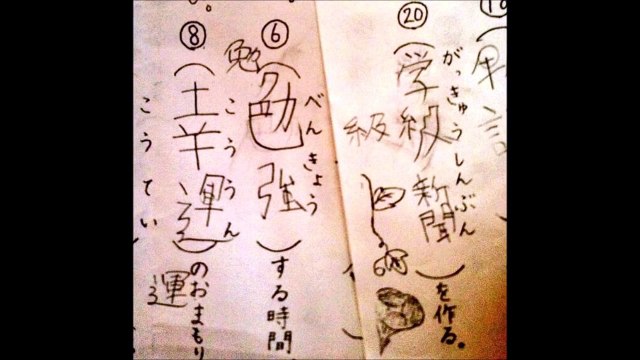 がっきゅうしんぶん
⑳(学級新聞)を作る。
級
べんきょう
⑥(勉強)する時間
勉
こううん
⑧(幸運)のおまもり
運
こうてい